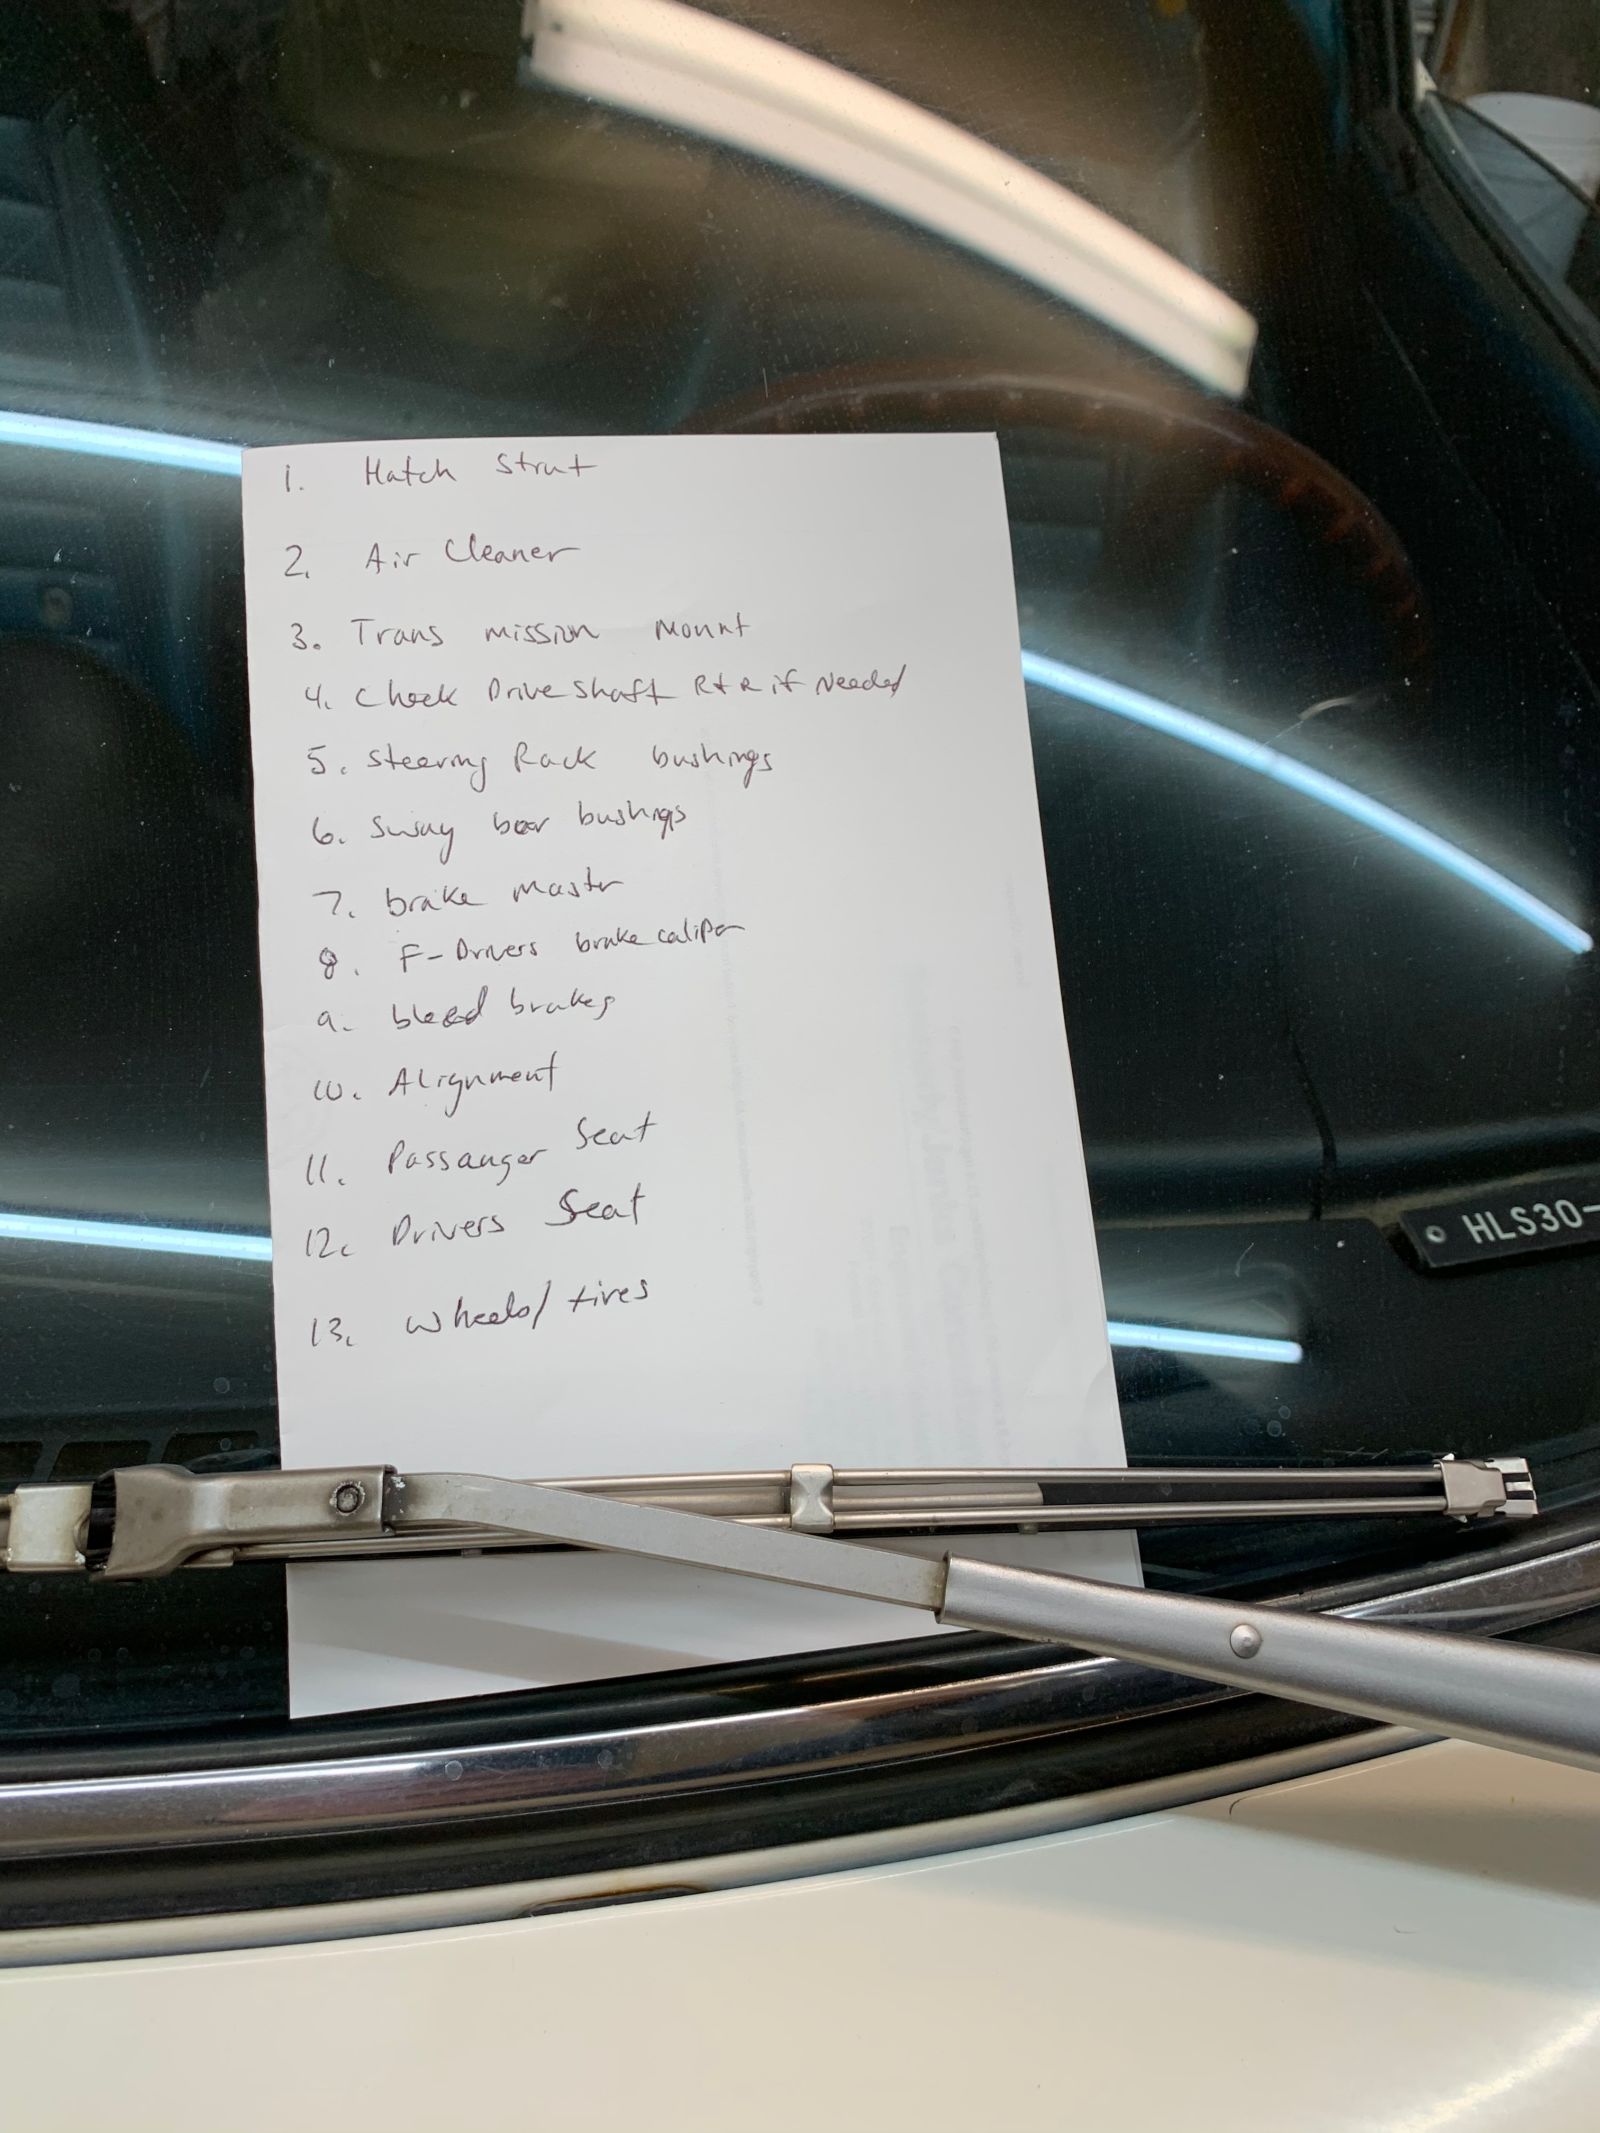 1. Hatch Strut
2. Air Cleaner
3. Trans mission Mount
4. Check Drive shaft R+R if Needed
5. Steering Rack bushings
6. Sway bar bushings
7. brake Mastr
8. F-Drivers brake caliper
9. bleed brakes
10. Alignment
11. Passanger Seat
12. Drivers Seat
13. Wheels/tires
HLS30-